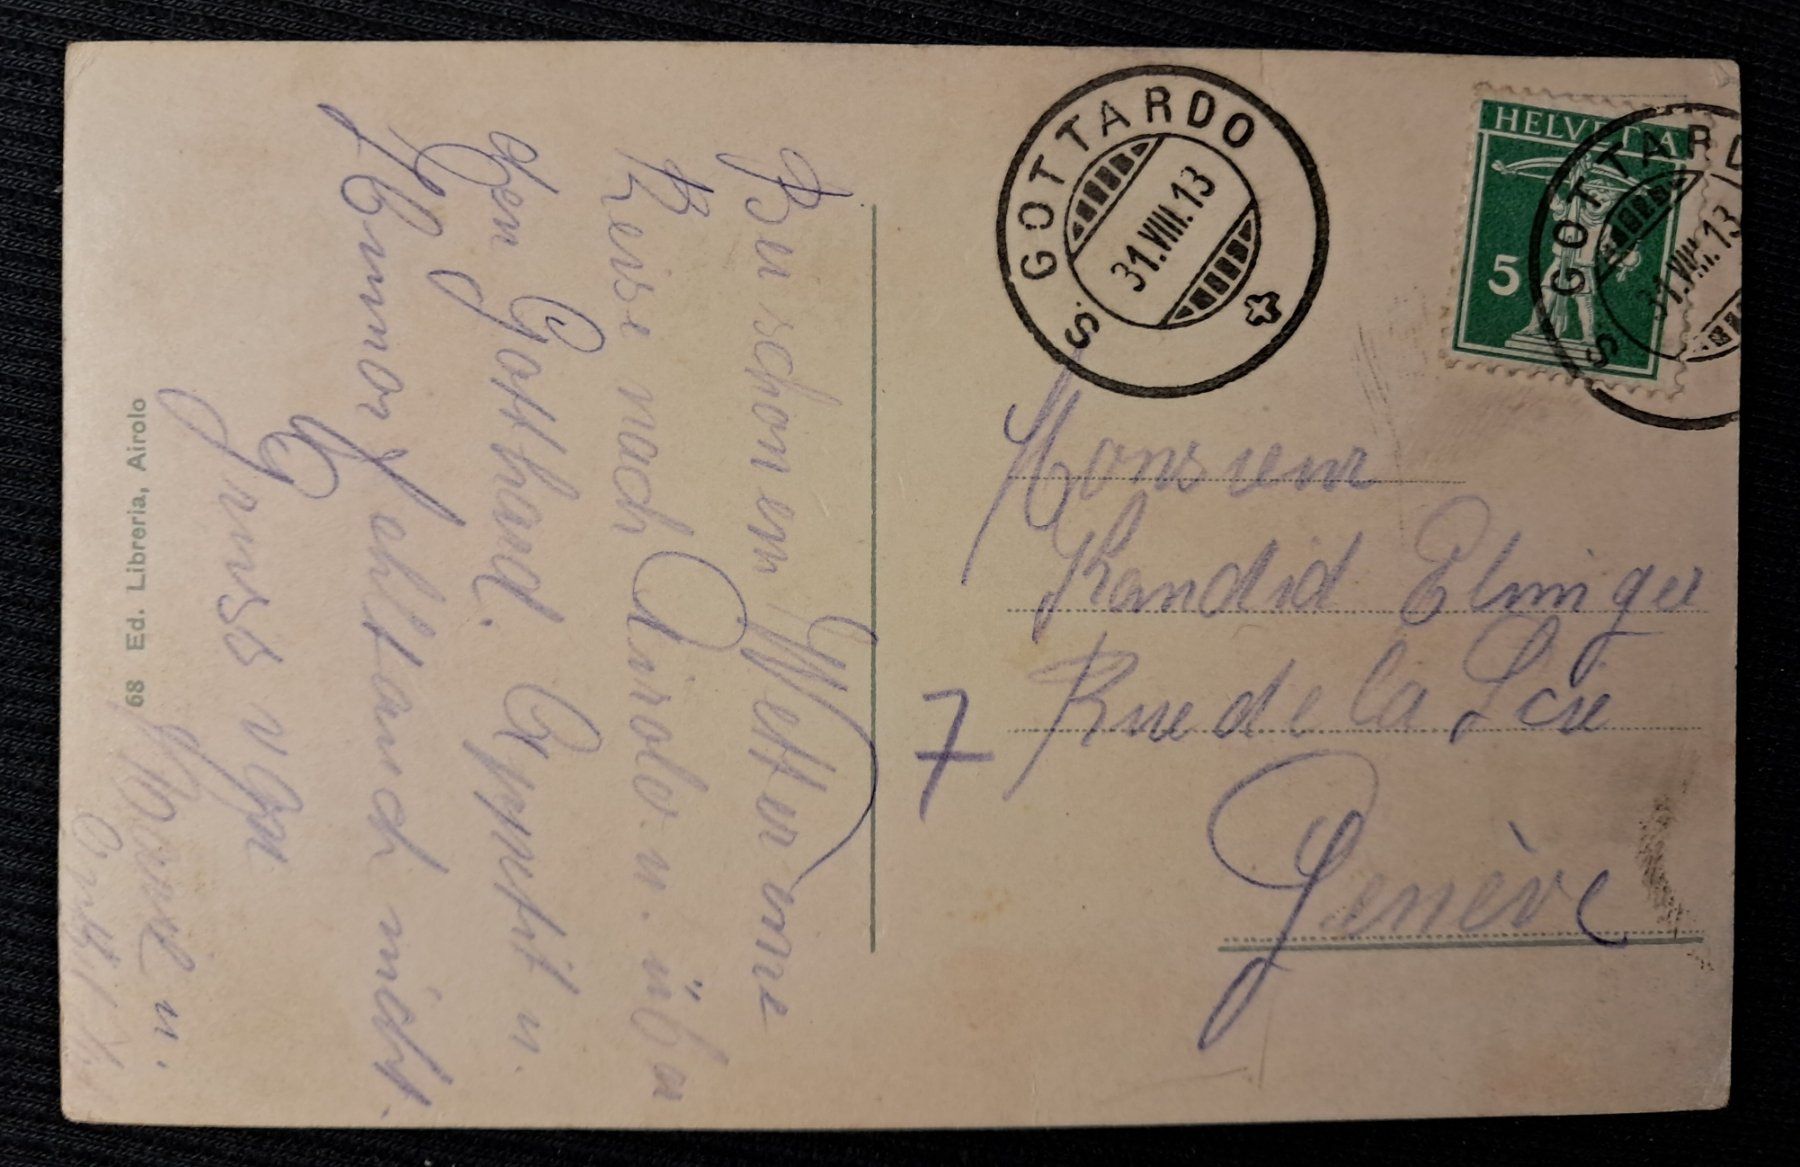 Bei schönem Wetter eine
Reise nach Airolo u. über
den Gotthard. Appetit u.
Humor fehlt auch nicht.
Gruss v.
Marie u.
68 Ed. Libreria, Airolo
S. GOTTARDO
31.VIII.13
HELVETIA
5
S. GOTTARD
31.VIII.13
Monsieur
Kandid Elmiger
Rue de la Scie
7
Genève